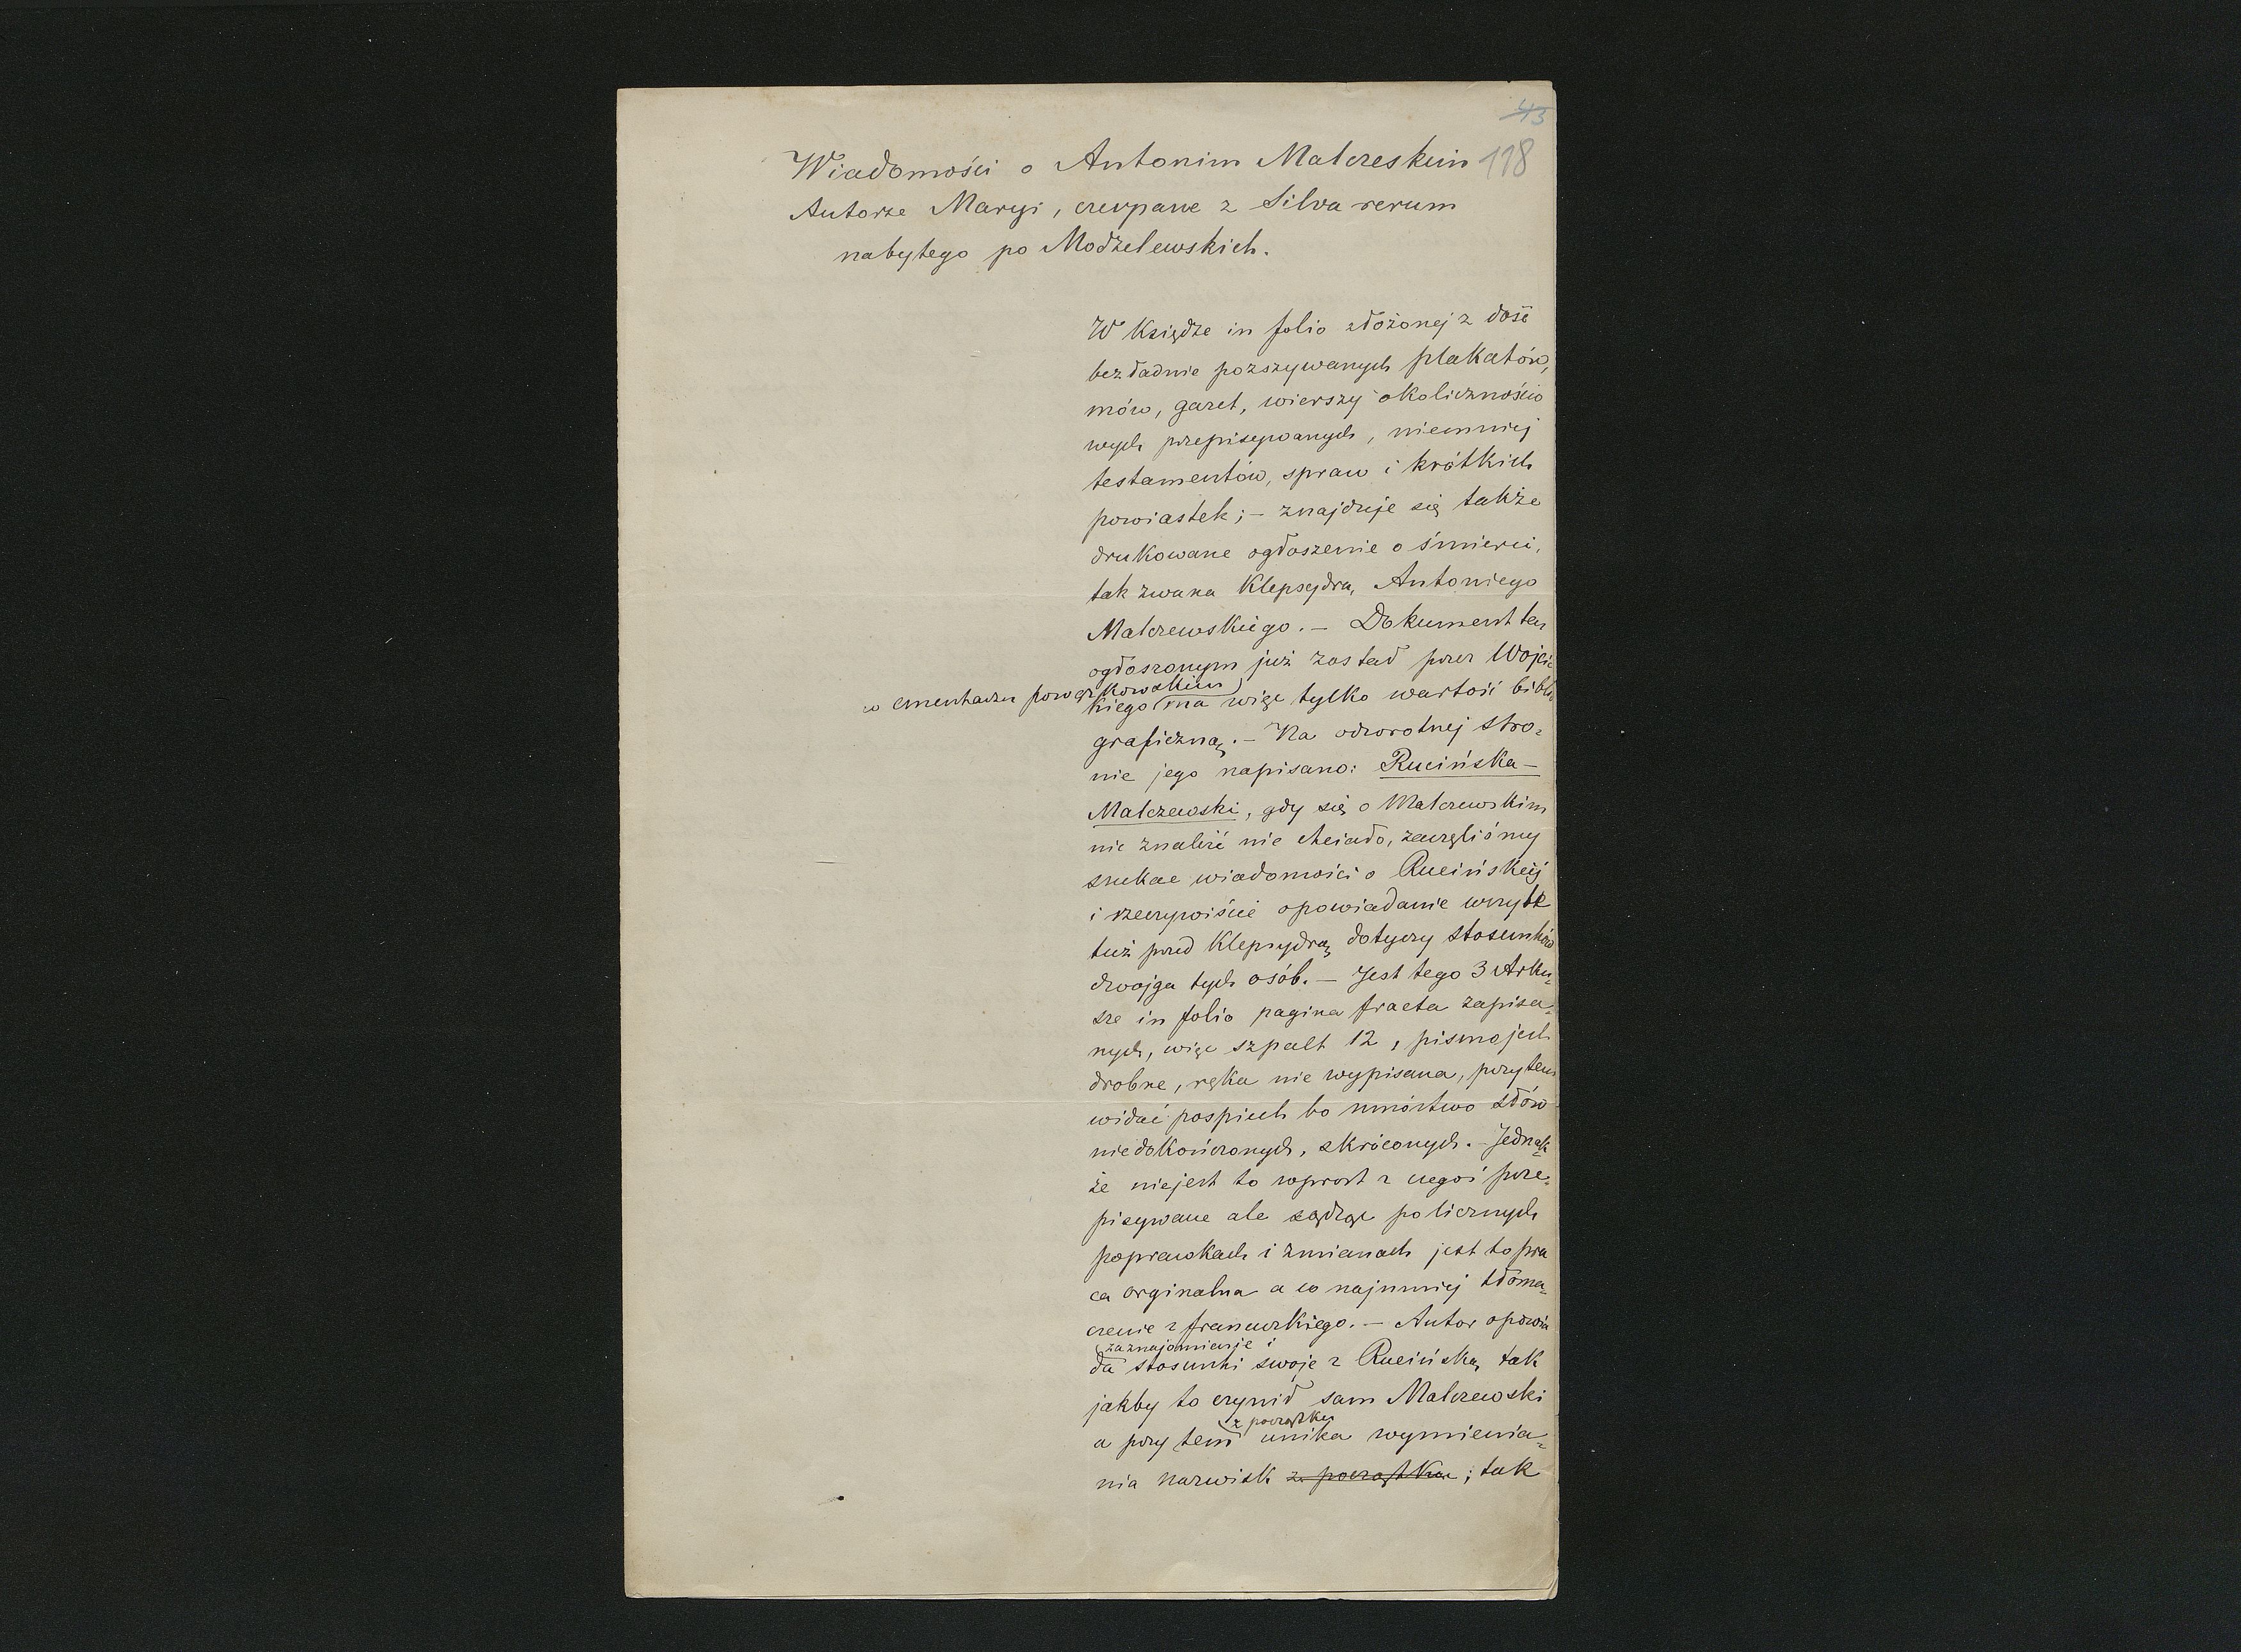 43
118
Wiadomości o Antonim Malczeskim
Autorze Maryi, czerpane z Silva rerum
nabytego po Modzelewskich.
W Księdze in folio złożonej z dość
bezładnie pozszywanych plakatów,
mów, gazet, wierszy okolicznościo
wych przepisywanych, niemniej
testamentów, spraw i krótkich
powiastek; – znajduje się także
drukowane ogłoszenie o śmierci,
tak zwana Klepsydra, Antoniego
Malczewskiego. – Dokument ten
ogłoszonym już został przez Wojcic
w cmentarzu powązkowskim
kiego ma więc tylko wartość biblio
graficzną. – Na odwrotnej stro=
nie jego napisano: Rucińska –
Malczewski, gdy się o Malczewskim
nic znaleźć nie chciało, zaczęliśmy
szukac wiadomości o Rucińskiej
i rzeczywiście opowiadanie wszyte
tuż przed Klepsydrą dotyczy stosunków
dwojga tych osób. – Jest tego 3 Arku=
sze in folio pagina fracta zapisa=
nych, więc szpalt 12, pismo jest
drobne, ręka nie wypisana, przytem
widać pospiech bo mnóstwo słów
niedokończonych, skróconych. – Jednak=
że niejest to wprost z czegoś prze=
pisywane ale sądząc po licznych
poprawkach i zmianach jest to pra
ca orginalna a co najmniej tłoma=
czenie z francuzkiego. – Autor opowia
zaznajomienie i
da stosunki swoje z Rucińską tak
jakby to czynił sam Malczewski
z początku
a przy tem unika wymienia=
nia nazwisk z początku; tak